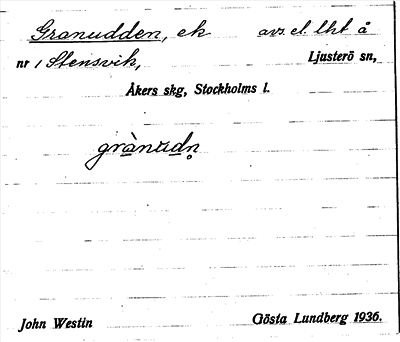 Granudden, ek avs. el. lht å
nr 1 Stensvik, Ljusterö sn,
Åkers skg, Stockholms l.
grànudn̥
John Westin Gösta Lundberg 1936.